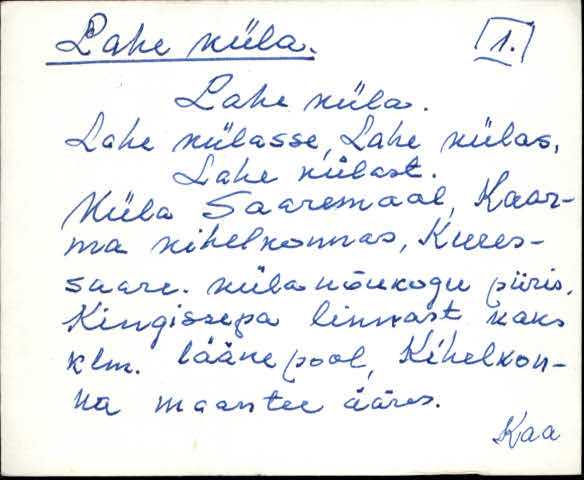 Lahe küla.
1.
Lahe küla.
Lahe külasse, Lahe külas,
Lahe külast.
Küla Saaremaal, Kaar-
ma kihelkonnas, Kures-
saare. külanõukogu piiris.
Kingissepa linnast kaks
klm. lääne pool, Kihelkon-
na maantee ääres.
Kaa